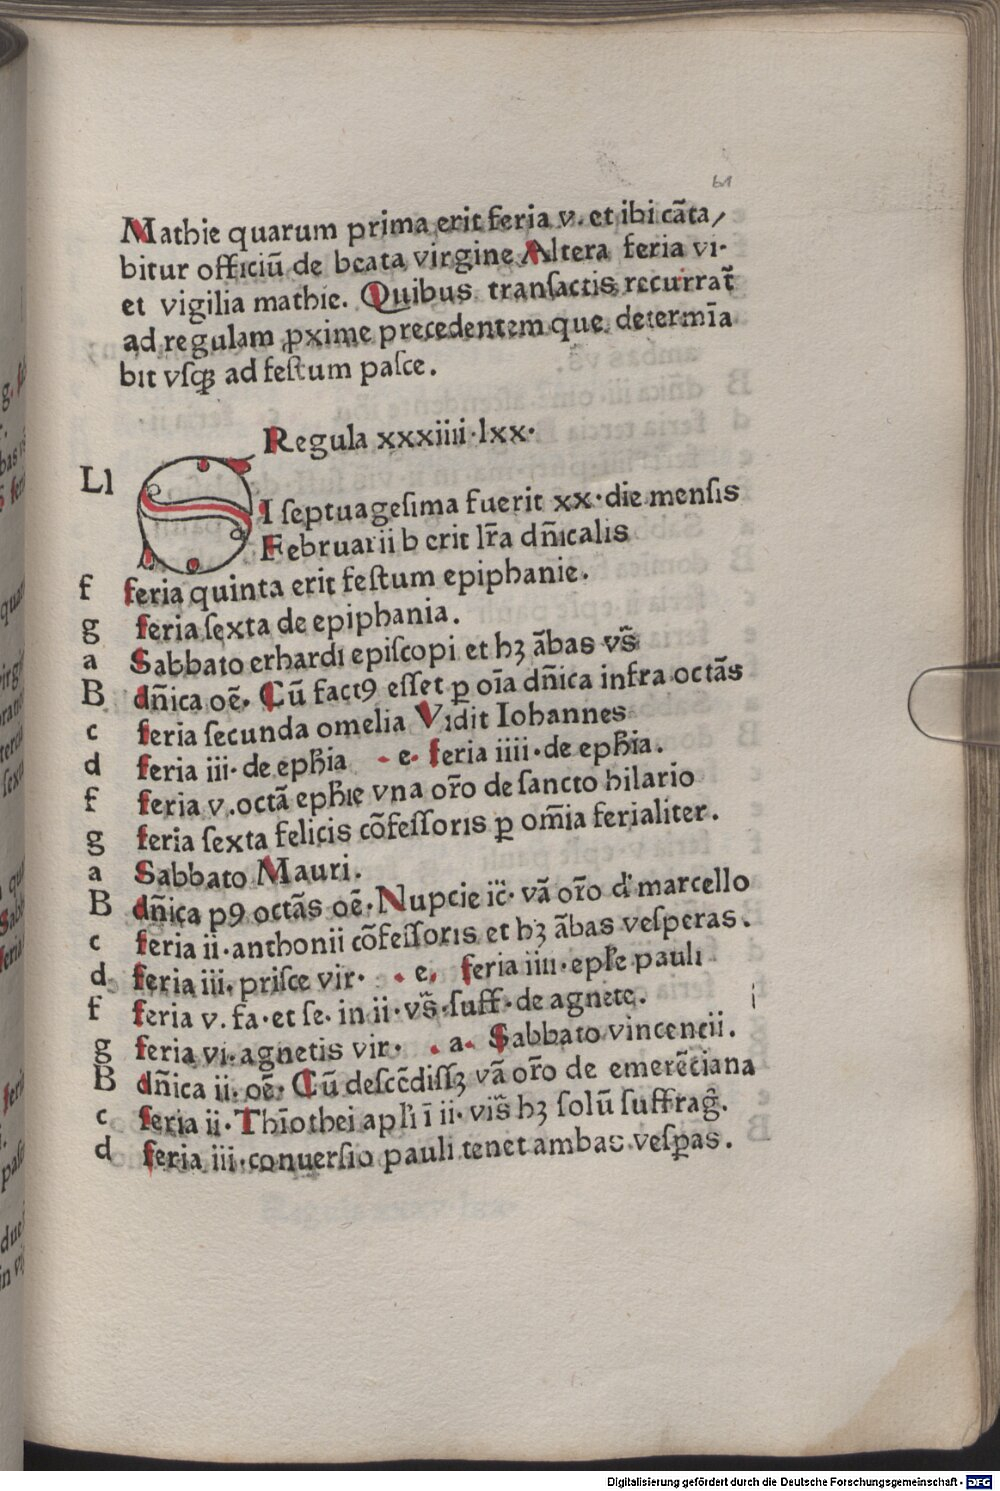 61
Mathie quarum prima erit feria v. et ibi cãta/
bitur officiũ de beata virgine Altera feria vi·
et vigilia mathie. Quibus transactis recurrat̃
ad regulam ꝓxime precedentem que determĩa
bit vsqꝫ ad festum pasce.
Regula xxxiiii·lxx·
Ll SI septuagesima fuerit xx·die mensis
Februarii b erit lr̃a dñicalis
f feria quinta erit festum epiphanie.
g feria sexta de epiphania.
a Sabbato erhardi episcopi et hꝫ ãbas vs̃
B dñica oẽ. Cũ factꝯ esset ꝑ oĩa dñica infra octãs
c feria secunda omelia Vidit Iohannes
d feria iii·de eph̃ia ·e· feria iiii·de eph̃ia.
f feria v.octã eph̃ie vna or̃o de sancto hilario
g feria sexta felicis cõfessoris ꝑ om̃ia ferialiter.
a Sabbato Mauri.
B dñica pꝯ octãs oẽ·Nupcie ic̃· vã or̃o d' marcello
c feria ii·anthonii cõfessoris et hꝫ ãbas vesperas.
d feria iii·prisce vir· ·e· feria iiii·epl̃e pauli
f feria v. fa·et se· in ii·vs̃·suff·de agnete.
g feria vi·agnetis vir· ·a· Sabbato vincencii.
B dñica ii·oẽ· Cũ descẽdissꝫ vã or̃o de emerẽciana
c feria ii·Thĩothei apl̃i ĩ ii·vis̃ hꝫ solũ suffrag̃.
d feria iii·conuersio pauli tenet ambas vesꝑas.
Digitalisierung gefördert durch die Deutsche Forschungsgemeinschaft - DFG